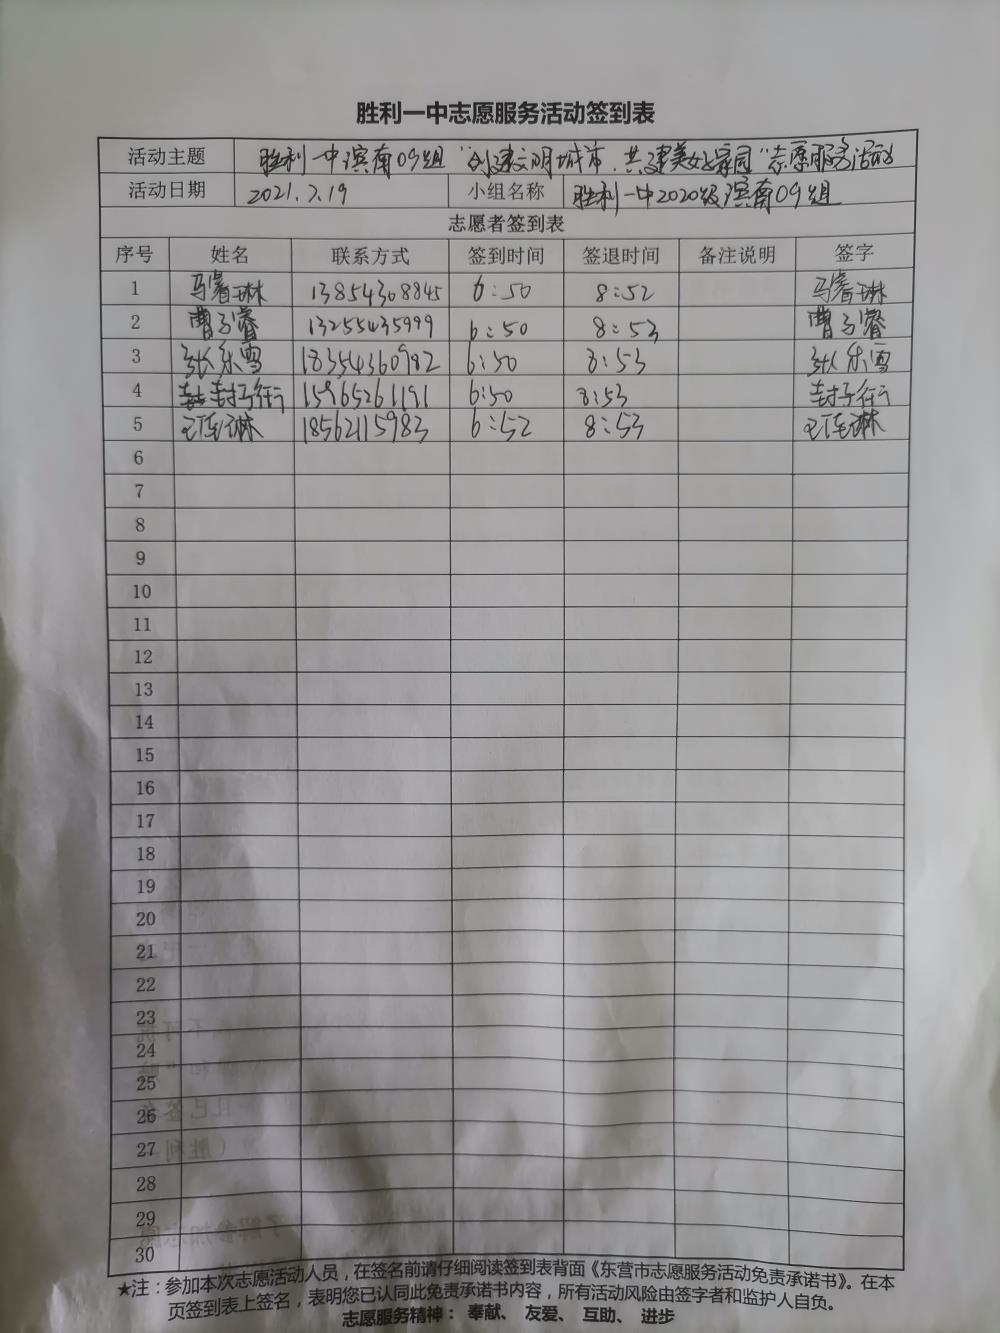 胜利一中志愿服务活动签到表
活动主题 胜利一中滨南09组"创建文明城市.共建美好家园"志愿服务活动
活动日期 2021.7.19 小组名称 胜利一中2020级滨南09组
志愿者签到表
序号 姓名 联系方式 签到时间 签退时间 备注说明 签字
1 马睿琳 13854308845 6:50 8:52 马睿琳
2 曹子睿 13255435999 6:50 8:53 曹子睿
3 张乐雪 18354360982 6:50 8:53 张乐雪
4 封子衍 15965261191 6:50 8:53 封子衍
5 琳 18562115983 6:52 8:53 琳
6
7
8
9
10
11
12
13
14
15
16
17
18
19
20
21
22
23
24
25
26
27
28
29
30
★注：参加本次志愿活动人员，在签名前请仔细阅读签到表背面《东营市志愿服务活动免责承诺书》。在本
页签到表上签名，表明您已认同此免责承诺书内容，所有活动风险由签字者和监护人自负。
志愿服务精神： 奉献、 友爱、 互助、 进步